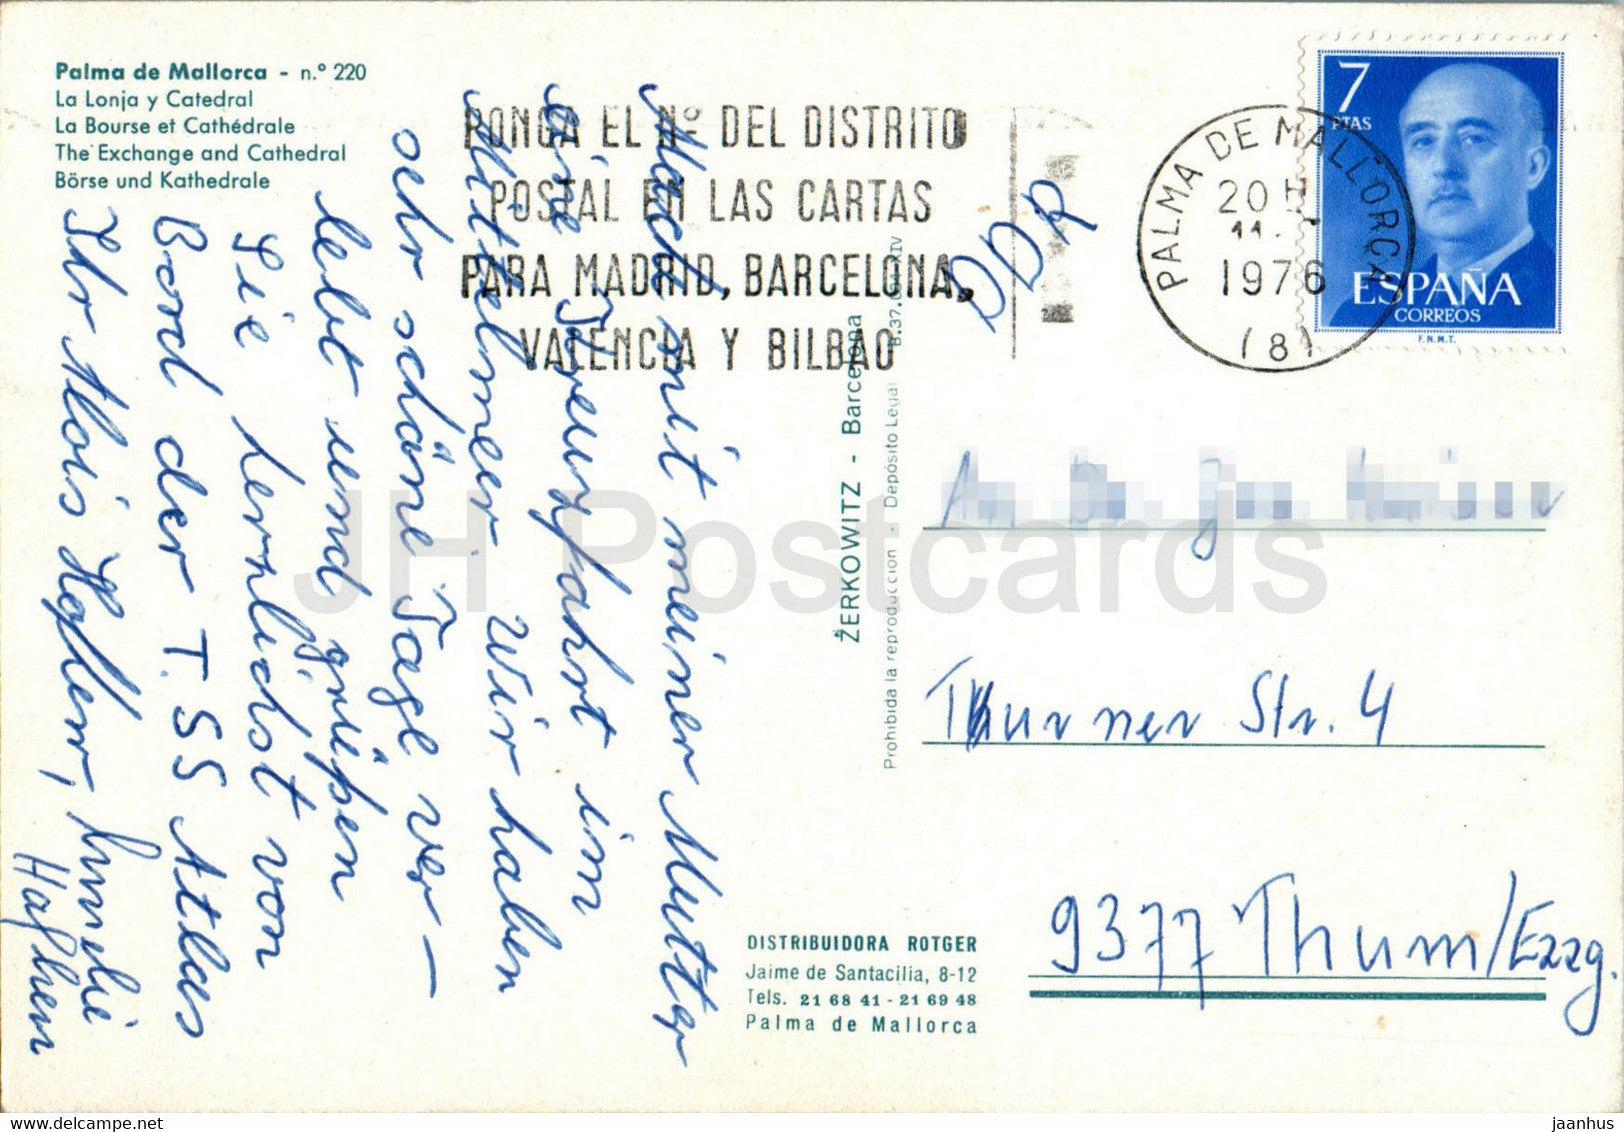 Palma de Mallorca - n.º 220
La Lonja y Catedral
La Bourse et Cathédrale
The Exchange and Cathedral
Börse und Kathedrale
PONGA EL Nº DEL DISTRITO
POSTAL EN LAS CARTAS
PARA MADRID, BARCELONA,
VALENCIA Y BILBAO
PALMA DE MALLORCA
20 H
11.
1976
(8)
7
PTAS
ESPAÑA
CORREOS
F.N.M.T.
DDR
mit meiner Mutter
eine Kreuzfahrt im
Mittelmeer. Wir haben
sehr schöne Tage ver-
lebt und grüßen
Sie herzlichst von
Bord der T.S.S Atlas
Ihr Alois
ŽERKOWITZ - Barcelona
Prohibida la reproduccion - Depósito Legal B.37. XIV
Thurner Str. 4
9377 Thum/Erzg.
DISTRIBUIDORA ROTGER
Jaime de Santacilia, 8-12
Tels. 21 68 41 - 21 69 48
Palma de Mallorca
JH Postcards
www.delcampe.net
jaanhus